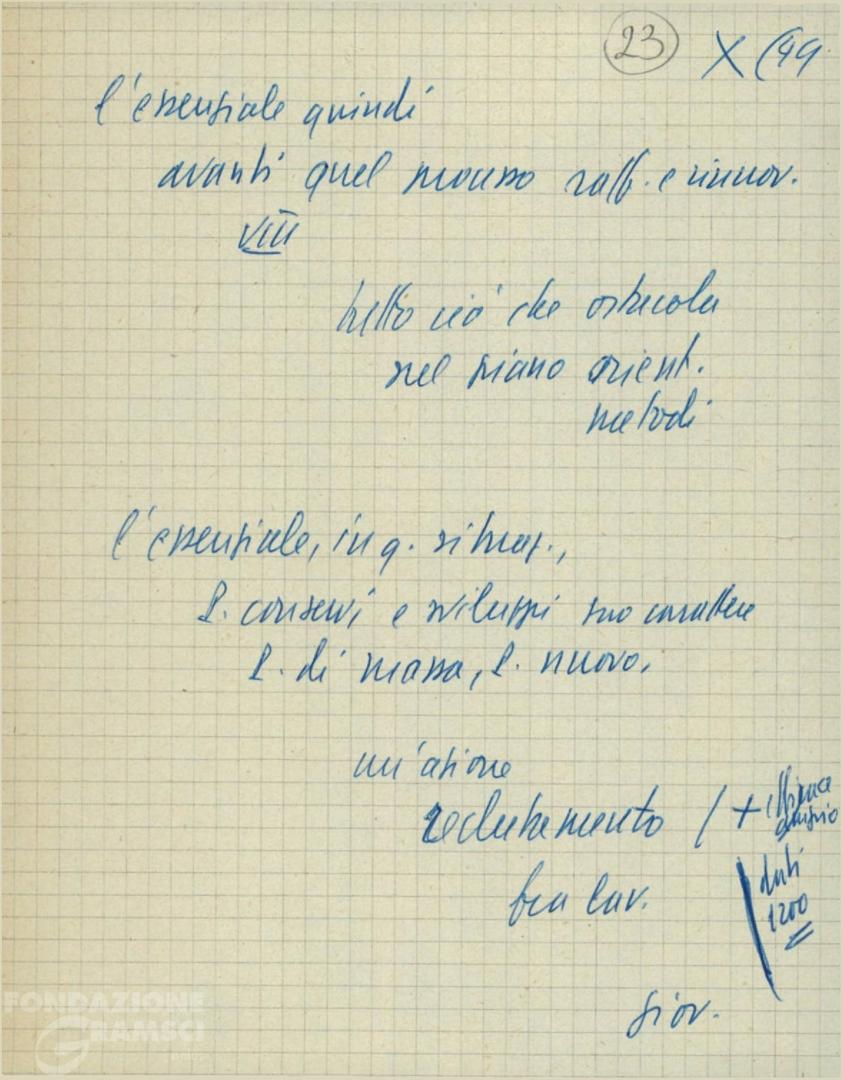 23 X (49
l'essenziale quindi
avanti quel processo raff. e rinnov.
VIII
tutto ciò che ostacola
nel piano orient.
metodi
l'essenziale, in q. situaz.,
P. conservi e sviluppi suo carattere
P. di massa, P. nuovo.
un'azione
reclutamento / +
fra lav.
dati
1200
giov.
FONDAZIONE
GRAMSCI